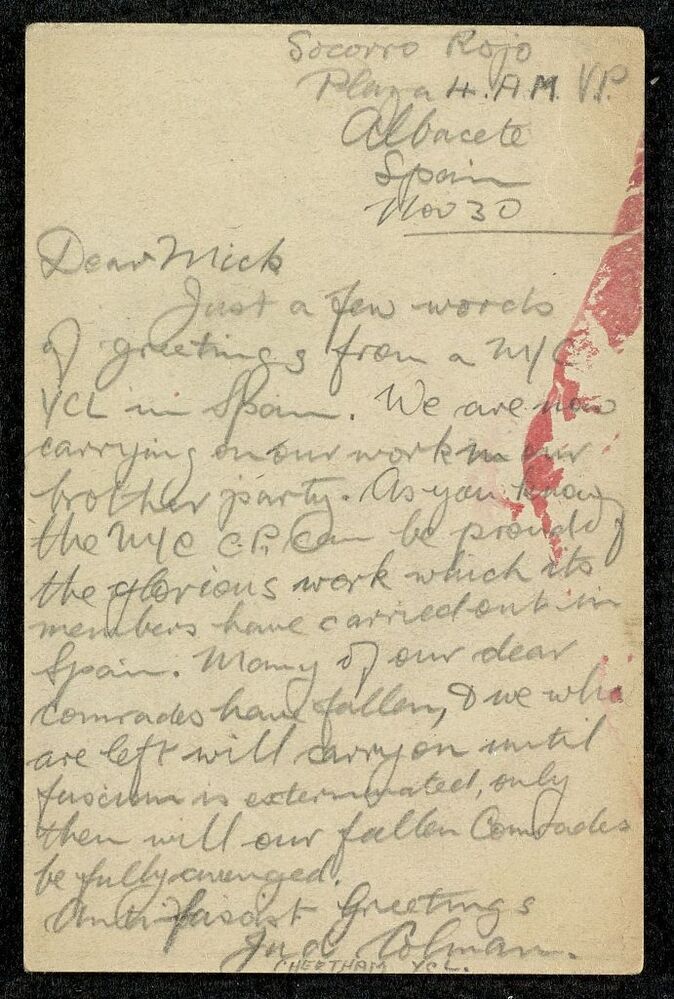 Socorro Rojo
Plaza 4. A.M. V.P
Albacete
Spain
Nov 30
Dear Mick
Just a few words
of greetings from a M/C
YCL in Spain. We are now
carrying on our work in our
brother party. As you know
the M/C C.P. can be proud of
the glorious work which its
members have carried out in
Spain. Many of our dear
comrades have fallen, & we who
are left will carry on until
fascism is exterminated, only
then will our fallen Comrades
be fully avenged.
Anti-fascist Greetings
Jud Colman.
CHEETHAM YCL.